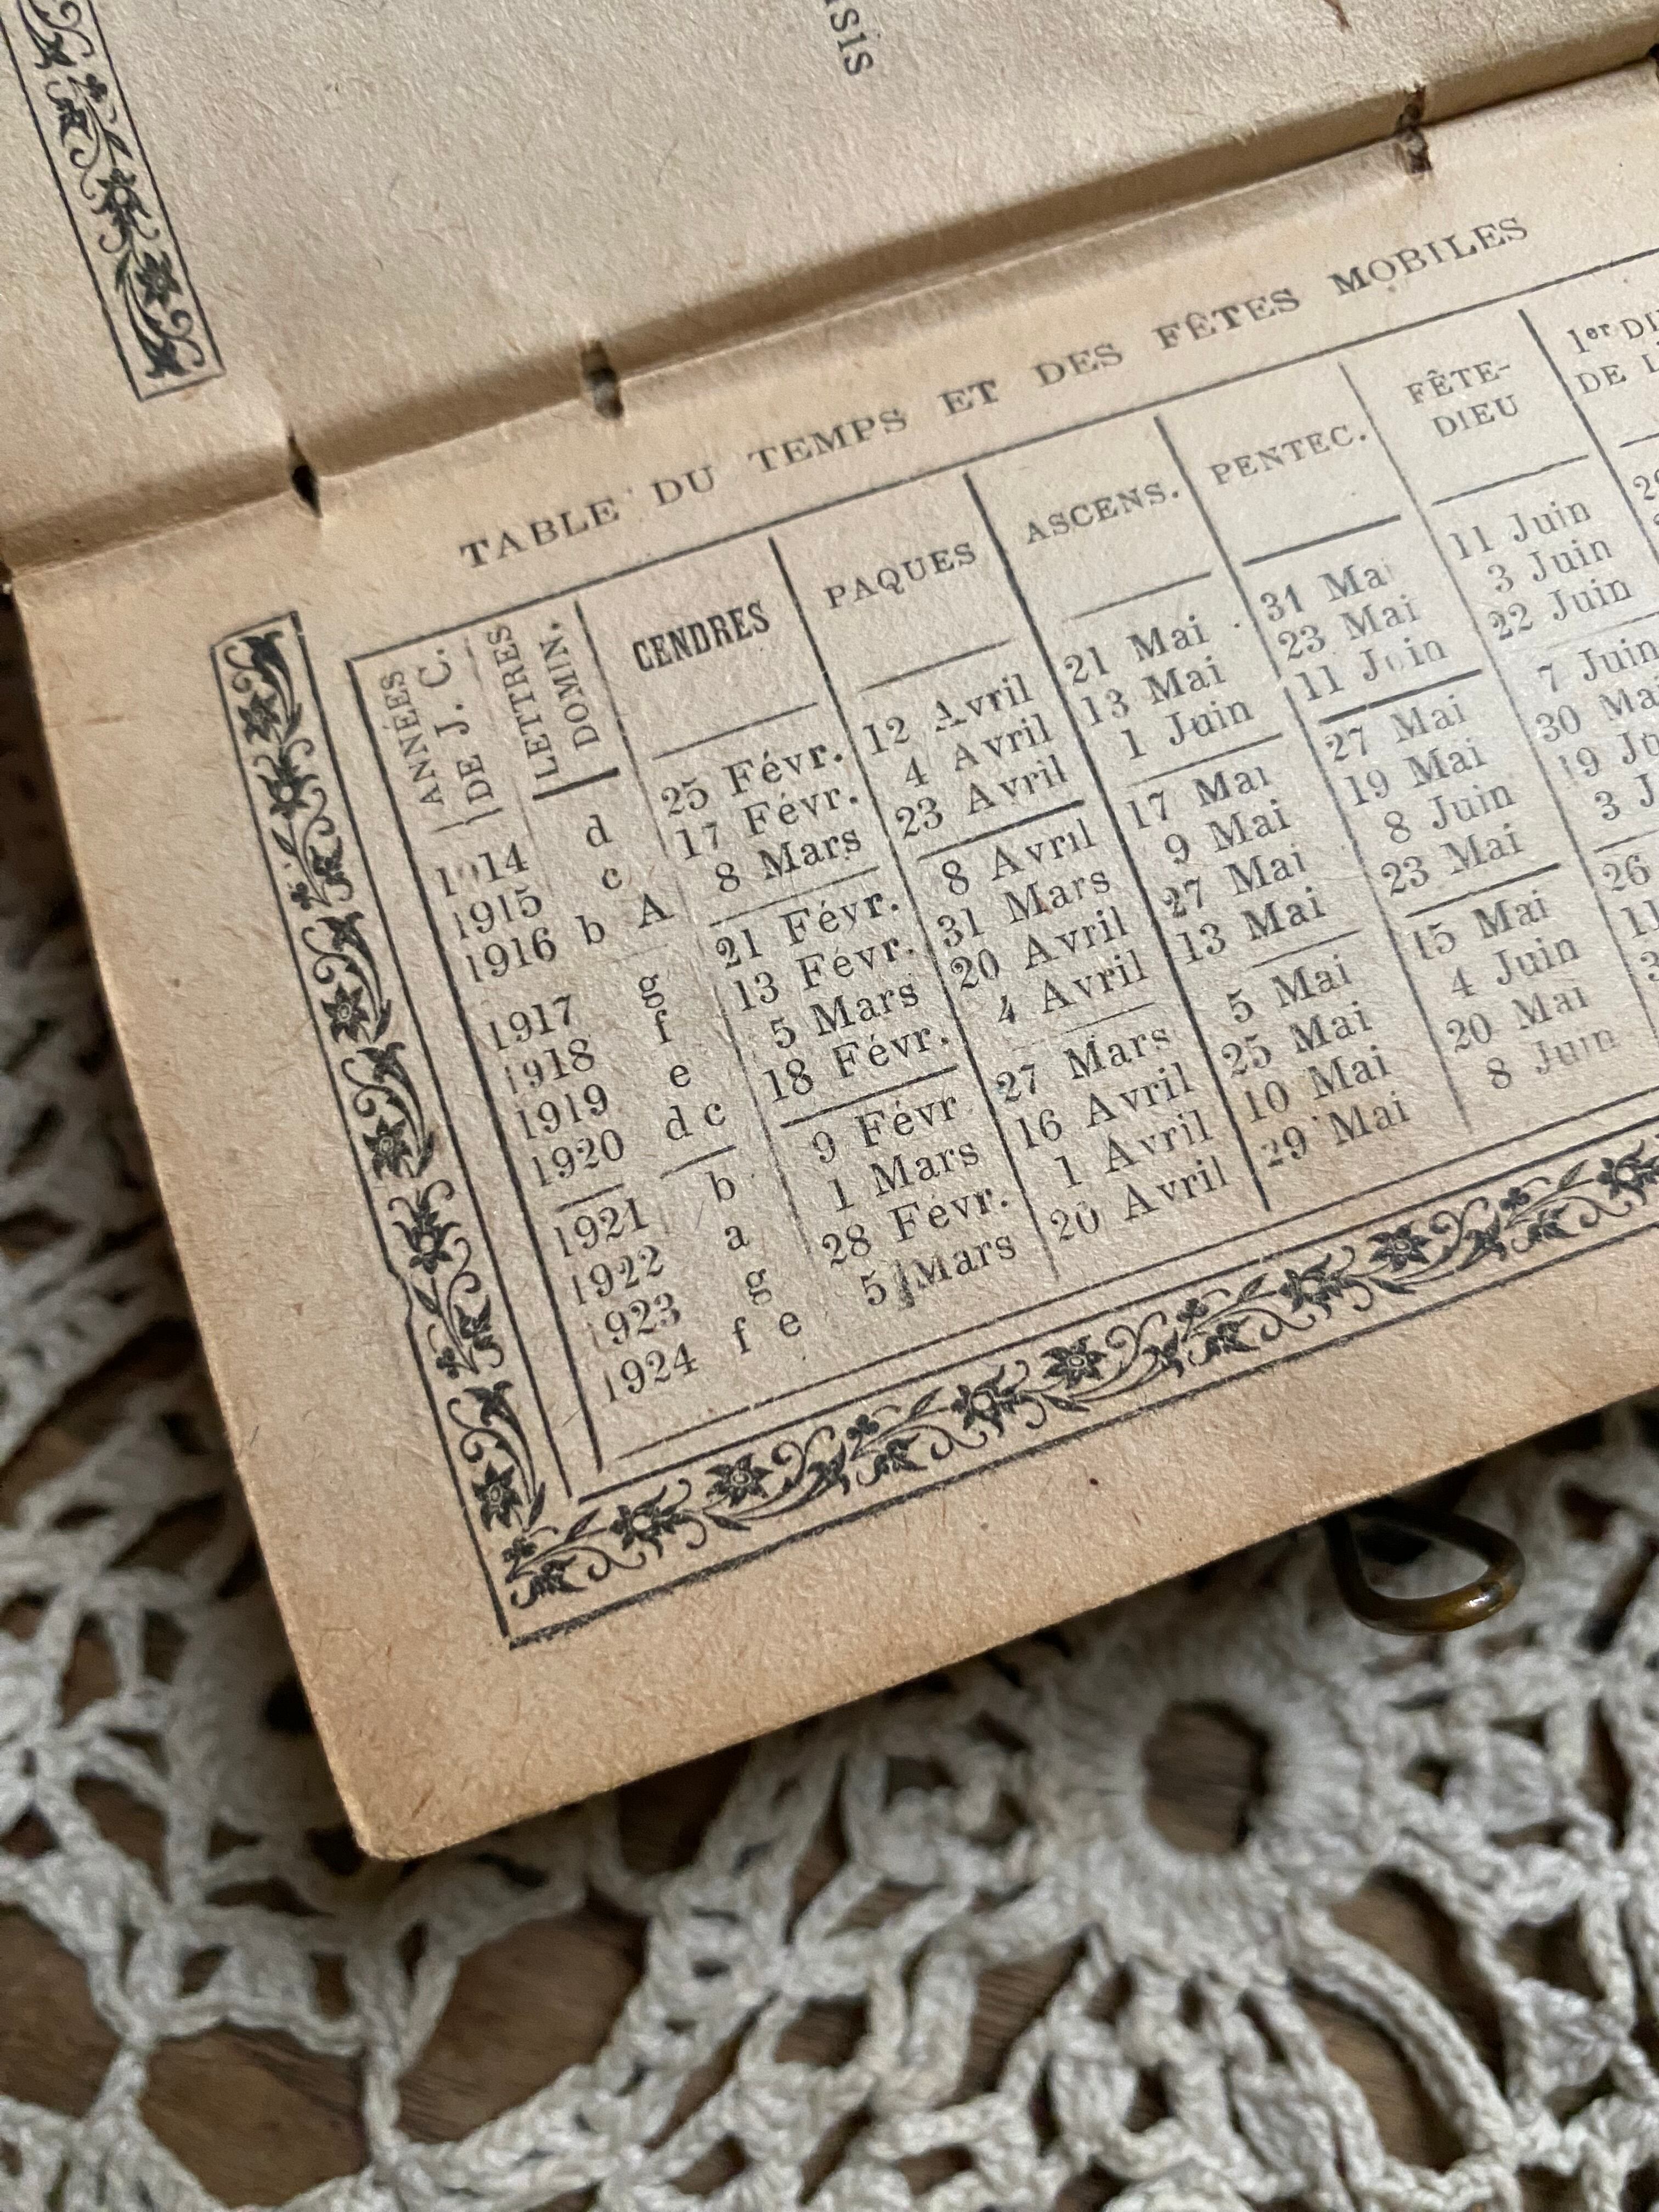 TABLE DU TEMPS ET DES FÊTES MOBILES
ANNÉES DE J. C. LETTRES DOMIN. CENDRES PAQUES ASCENS. PENTEC. FÊTE-DIEU 1er DE
1914 d 25 Févr. 12 Avril 21 Mai 31 Mai 11 Juin
1915 c 17 Févr. 4 Avril 13 Mai 23 Mai 3 Juin
1916 b A 8 Mars 23 Avril 1 Juin 11 Juin 22 Juin
1917 g 21 Févr. 8 Avril 17 Mai 27 Mai 7 Juin
1918 f 13 Févr. 31 Mars 9 Mai 19 Mai 30 Mai
1919 e 5 Mars 20 Avril 27 Mai 8 Juin 19
1920 d c 18 Févr. 4 Avril 13 Mai 23 Mai 3
1921 b 9 Févr 27 Mars 5 Mai 15 Mai 26
1922 a 1 Mars 16 Avril 25 Mai 4 Juin
1923 g 28 Févr. 1 Avril 10 Mai 20 Mai
1924 f e 5 Mars 20 Avril 29 Mai 8 Juin